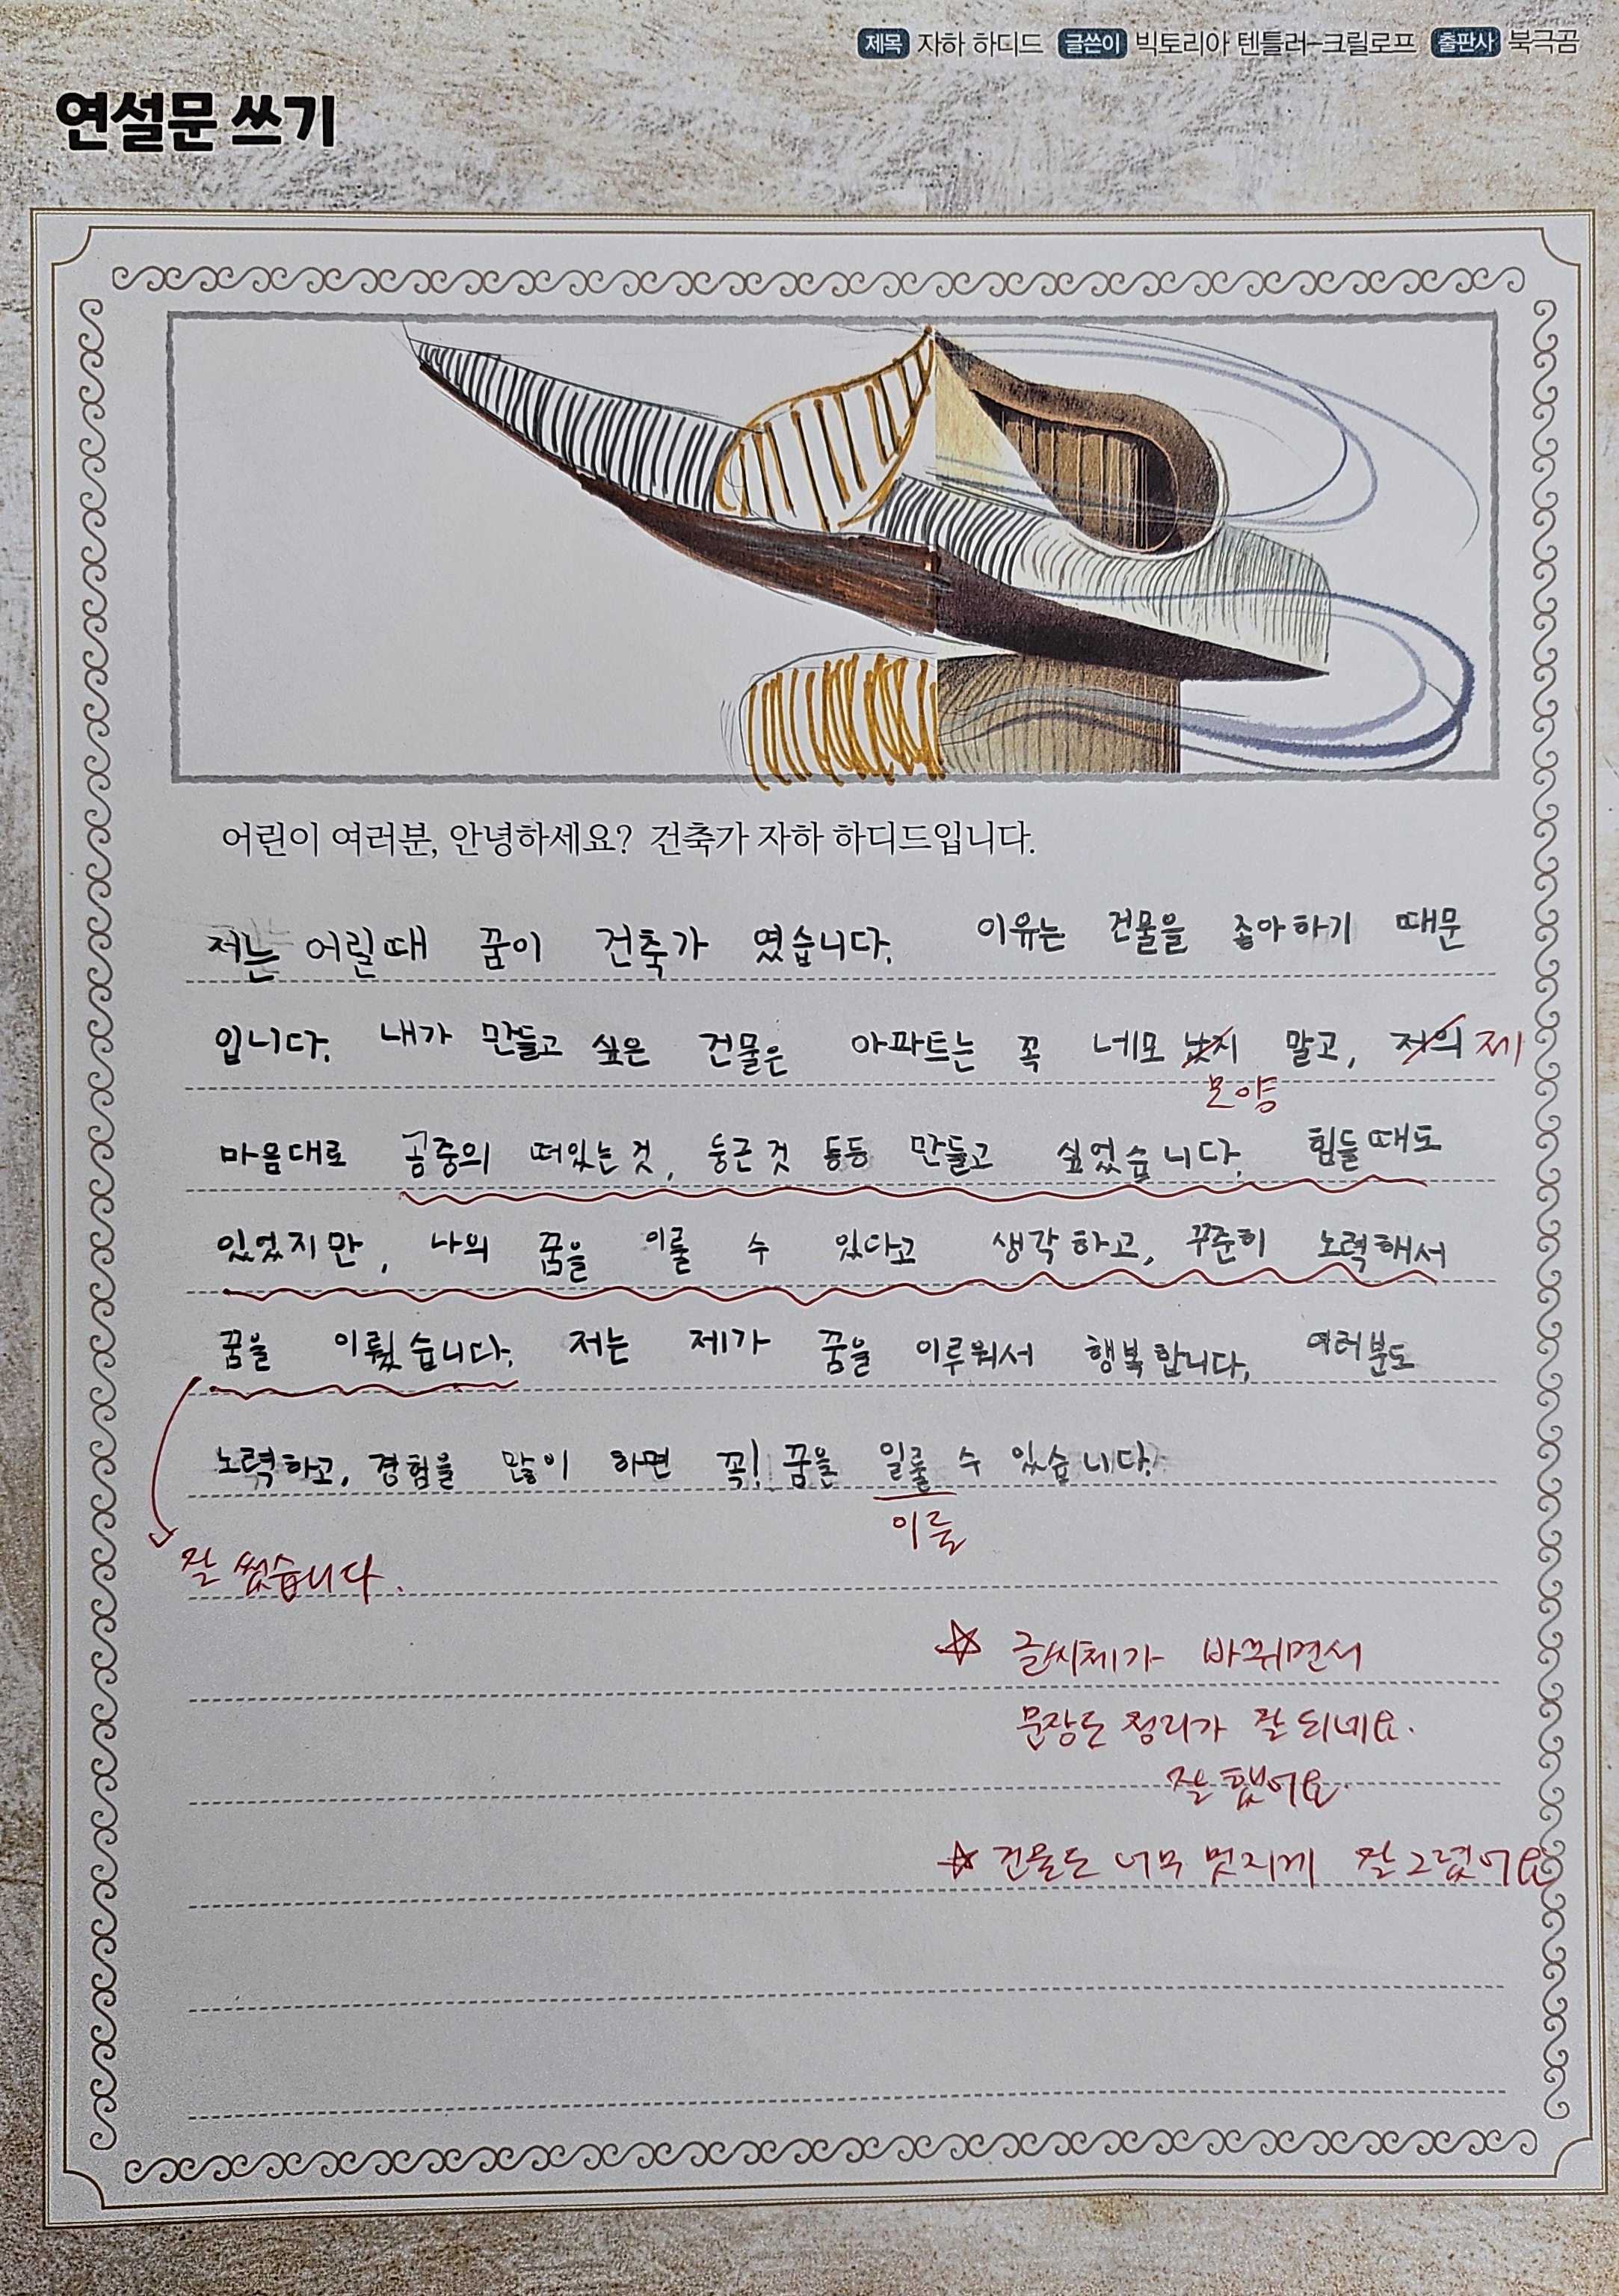 제목 자하 하디드 글쓴이 빅토리아 텐틀러-크릴로프 출판사 북극곰
연설문 쓰기
어린이 여러분, 안녕하세요? 건축가 자하 하디드입니다.
저는 어릴때 꿈이 건축가 였습니다. 이유는 건물을 좋아하기 때문
입니다. 내가 만들고 싶은 건물은 아파트는 꼭 네모 났지 말고, 저의 제
모양
마음대로 공중의 떠있는것, 둥근것 등등 만들고 싶었습니다. 힘들때도
있었지만, 나의 꿈을 이룰 수 있다고 생각하고, 꾸준히 노력해서
꿈을 이뤘습니다. 저는 제가 꿈을 이루워서 행복합니다, 여러분도
노력하고, 경험을 많이 하면 꼭! 꿈을 일룰 수 있습니다.
이룰
잘 썼습니다.
☆ 글씨체가 바뀌면서
문장도 정리가 잘 되네요.
잘 했어요.
☆ 건물도 너무 멋지게 잘 그렸어요